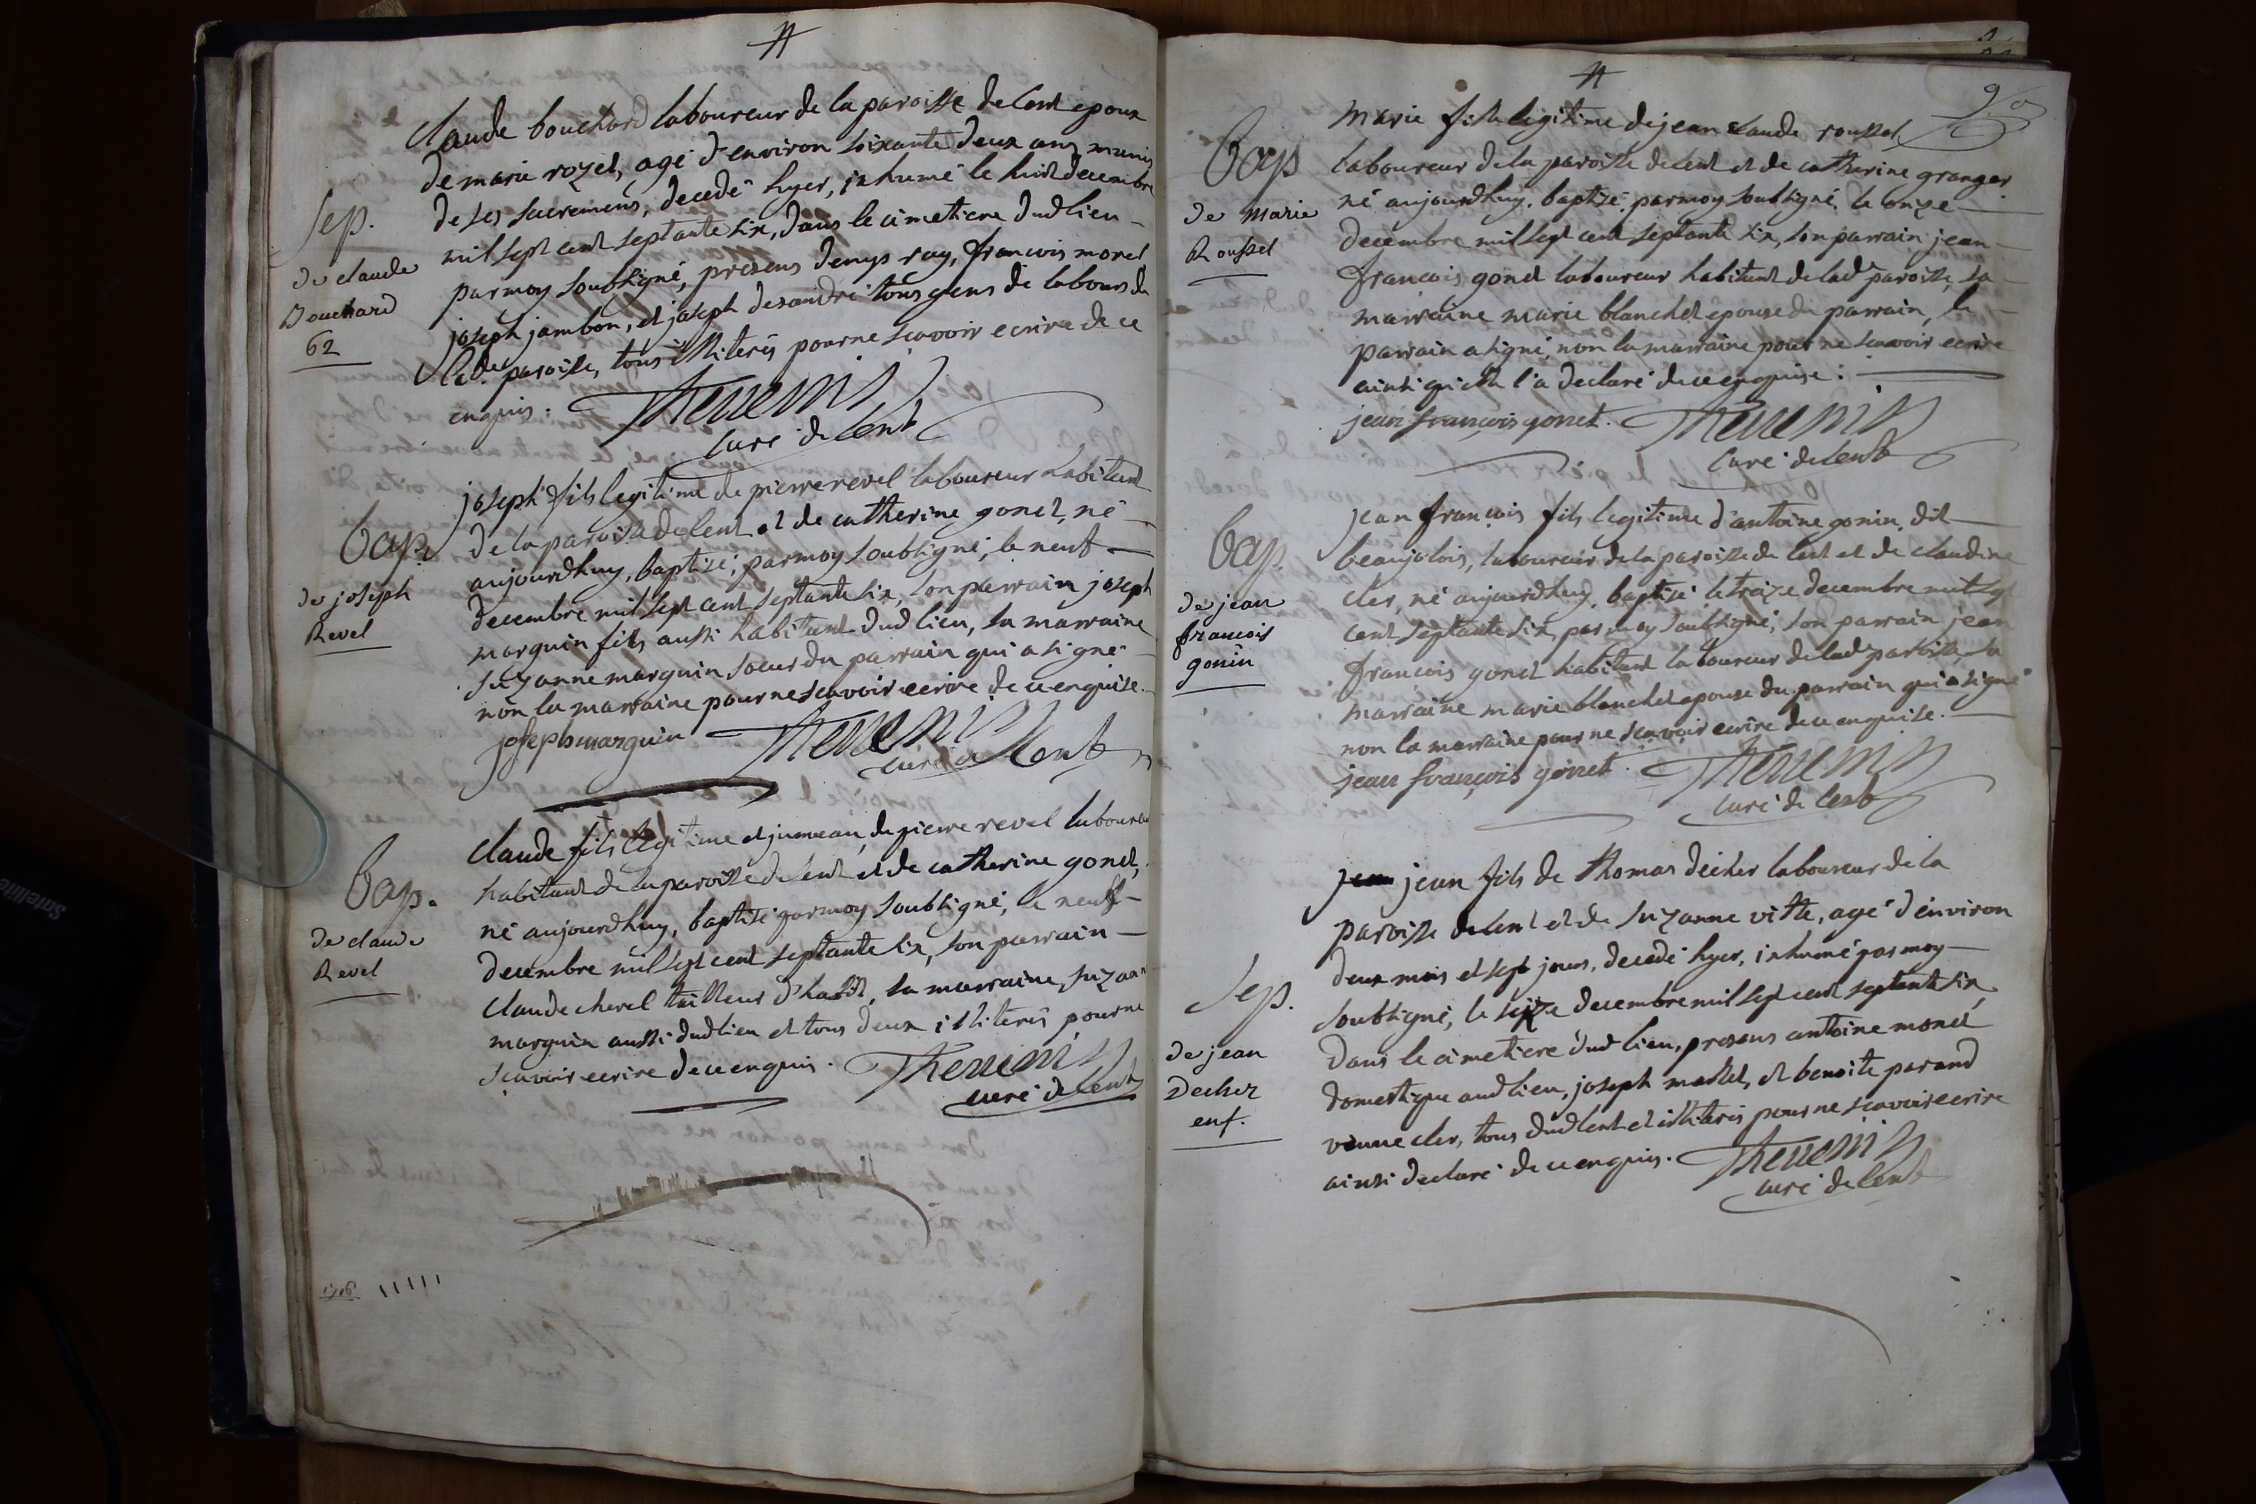 claude bouchard laboureur de la paroisse de lent epoux
de marie rozet, agé d'environ soixante deux ans, munis
de ses sacremens, decedé hyer, inhumé le huit decembre
mil sept cent septante six, dans le cimetiere dud lieu
par moy soubsigné, presens denys ray, francois moret
joseph jambon, et joseph desandré tous gens de labours de
lade paroisse, tous illiterés pour ne scavoir ecrire de ce
enquis.
Thevenin
curé de lent
Sep.
de claude
Bouchard
62
joseph fils legitime de pierre revel laboureur habitant
de la paroisse de lent et de catherine gonet, né
aujourdhuy, baptisé, par moy soubsigné, le neuf
decembre mil sept cent septante six, son parrain joseph
marguin fils aussi habitant dud lieu, sa marraine
suzanne marguin soeur du parrain qui a signé
non la marraine pour ne scavoir ecrire de ce enquise.
joseph marguin Thevenin
curé de lent
bap.
de joseph
Revel
claude fils legitime et jumeau, de pierre revel laboureur
habitant de la paroisse de lent et de catherine gonet,
né aujourdhuy, baptisé par moy soubsigné, le neuf
decembre mil sept cent septante six, son parrain
claude chevel tailleur d'habit, sa marraine, suzanne
marguin aussi dud lieu et tous deux illiterés pour ne
scavoir ecrire de ce enquis. Thevenin
curé de lent
bap.
de claude
Revel
marie fille legitime de jean claude roussel
laboureur de la paroisse de lent et de catherine granger
né aujourdhuy, baptisé, par moy soubsigné, le onze
decembre mil sept cent septante six, son parrain jean
francois gonet laboureur habitant de lade paroisse, sa
marraine marie blanchet epouse du parrain, le
parrain a signé, non la marraine pour ne scavoir ecrire
ainsi qu'elle l'a declaré de ce enquise.
jean françois gonet. Thevenin
curé de lent
bap
de marie
Roussel
jean françois fils legitime d'antoine gonin, dit
beaujolois, laboureur de la paroisse de lent et de claudine
cler, né aujourdhuy, baptisé le treize decembre mil sept
cent septante six, par moy soubsigné, son parrain jean
françois gonet habitant laboureur de lade paroisse, sa
marraine marie blanchet epouse du parrain qui a signé
non la marraine pour ne scavoir ecrire de ce enquise.
jean françois gonnet. Thevenin
curé de lent
bap.
de jean
francois
gonin
jean fils de thomas decher laboureur de la
paroisse de lent et de suzanne vitte, agé d'environ
deux mois et sept jours, decedé hyer, inhumé par moy
soubsigné, le seize decembre mil sept cent septante six,
dans le cimetiere dud lieu, presens antoine moret
domestique aud lieu, joseph martet, et benoite parand
veuve cler, tous dud lent et illiterés pour ne scavoir ecrire
ainsi declaré de ce enquis. Thevenin
curé de lent
Sep.
de jean
Decher
enf.